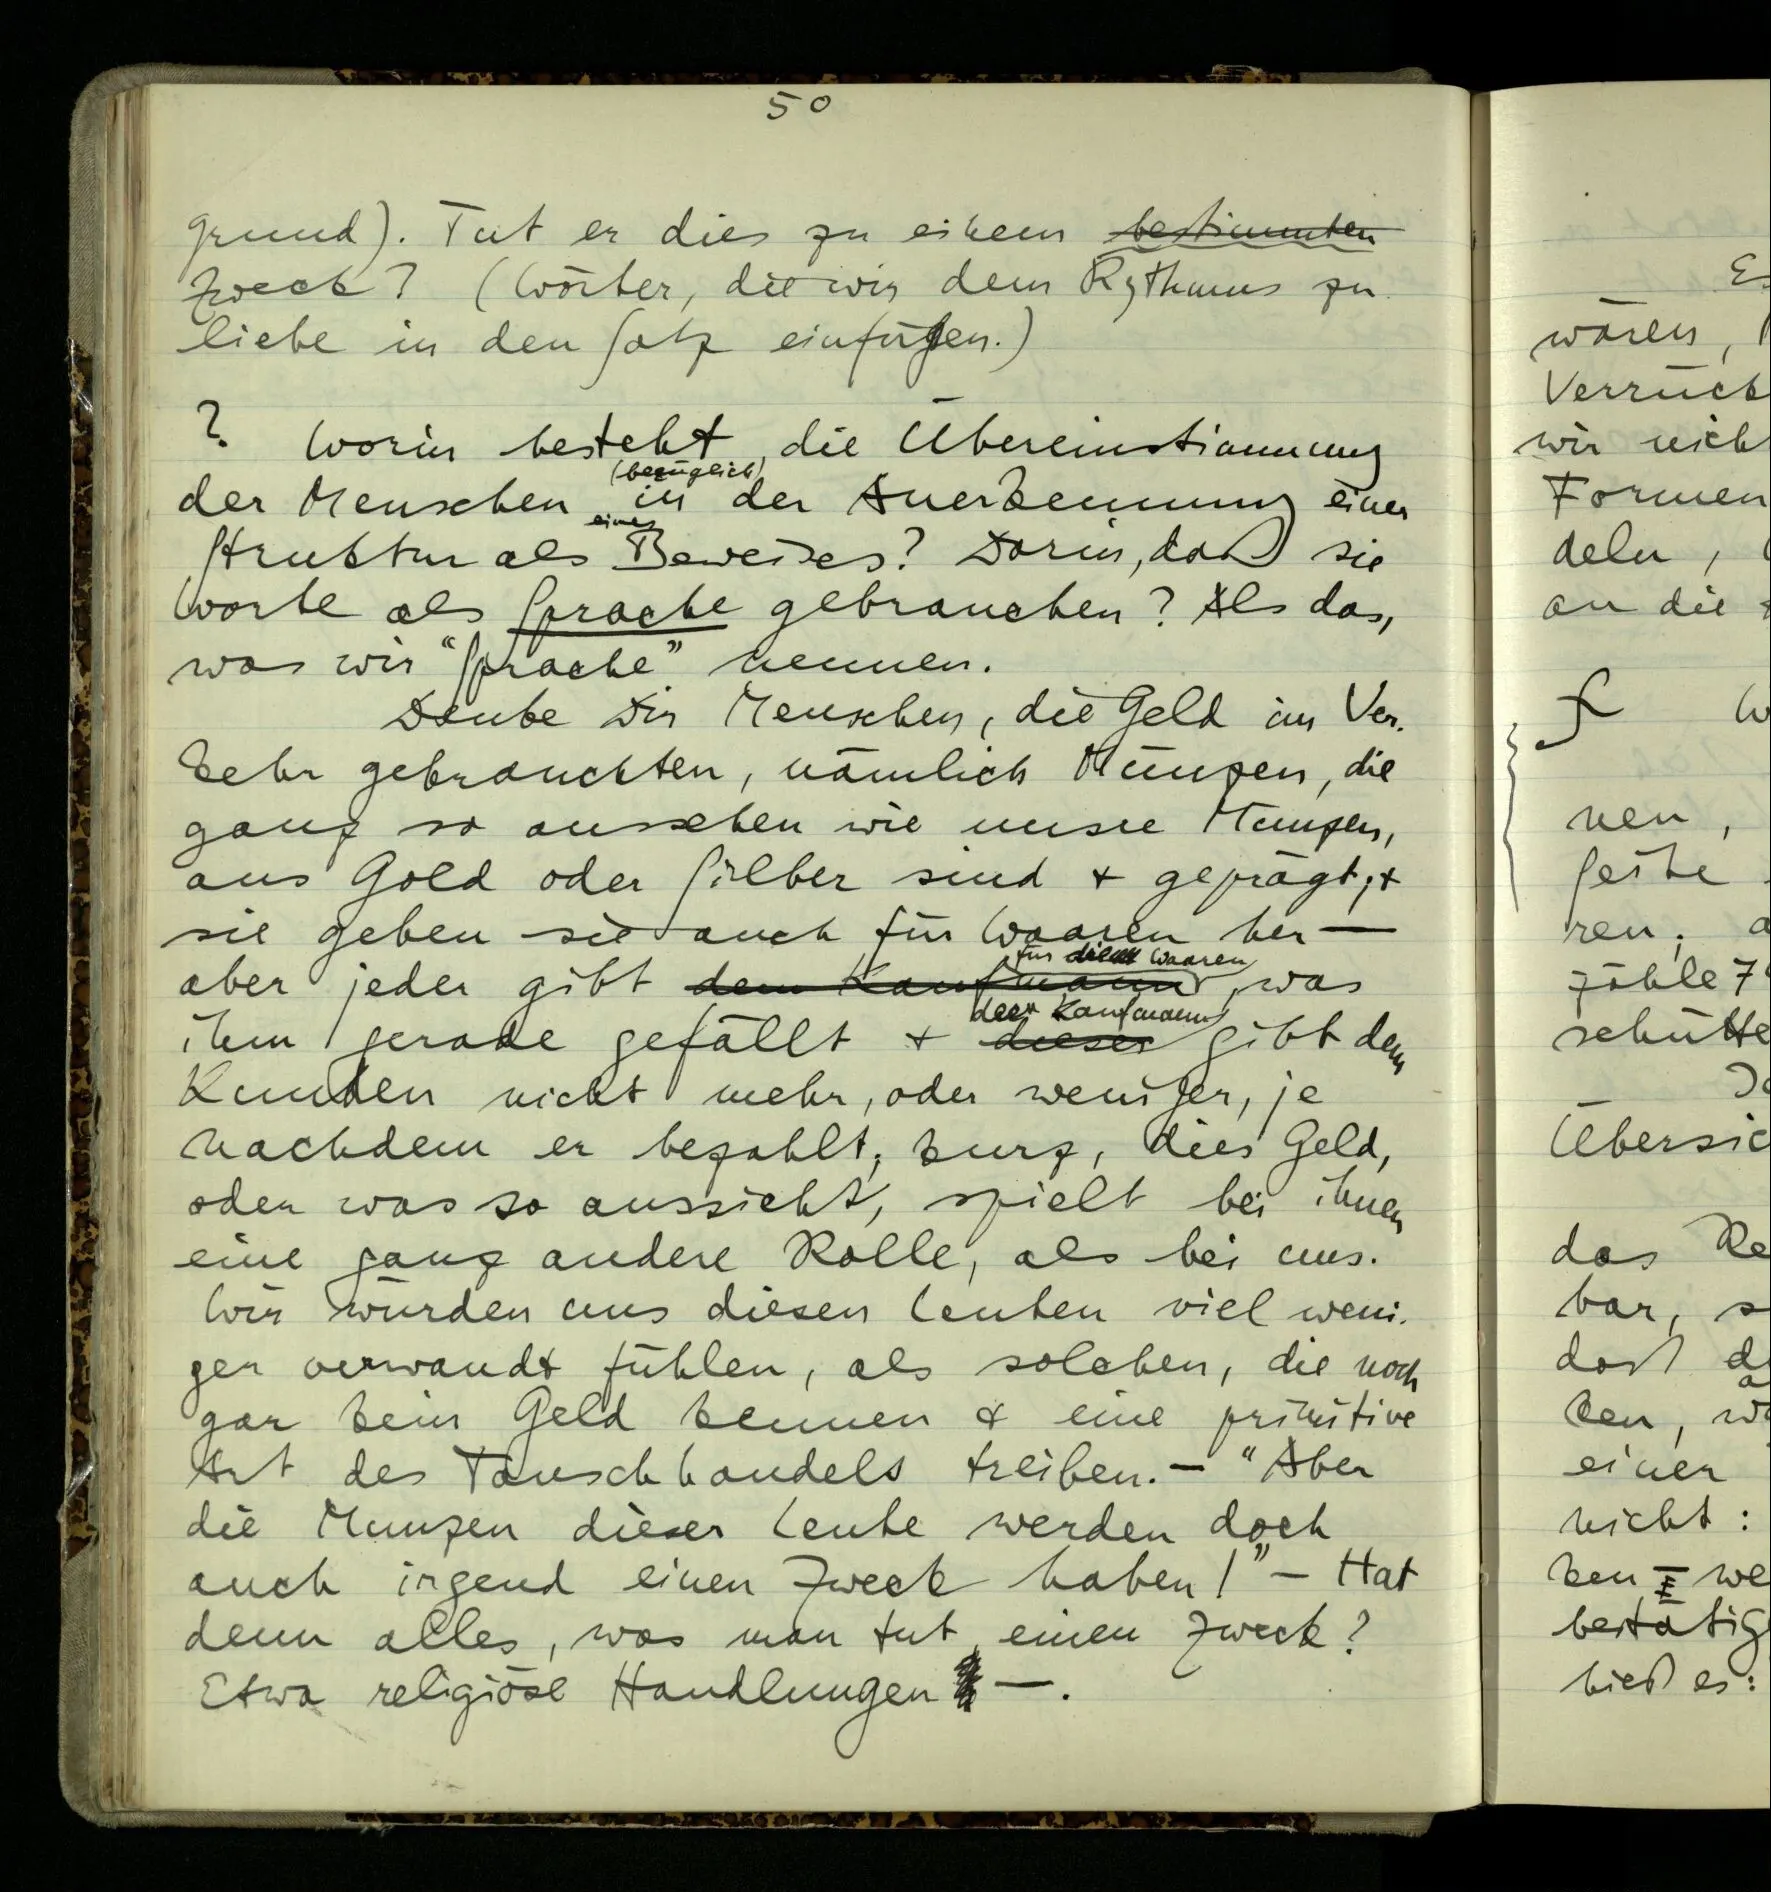 50
grund). Tut er dies zu einem bestimmten
Zweck? (Wörter, die wir dem Rythmus zu
liebe in den Satz einfügen.)
? Worin besteht die Übereinstimmung
(bezüglich)
der Menschen in der Anerkennung einer
eines
Struktur als Beweises? Darin, daß sie
Worte als Sprache gebrauchen? Als das,
was wir "Sprache" nennen.
Denke Dir Menschen, die Geld im Ver-
kehr gebrauchten, nämlich Münzen, die
ganz so aussehen wie unsre Münzen,
aus Gold oder Silber sind + geprägt; +
sie geben sie auch für Waaren her —
für die Waaren
aber jeder gibt dem Kaufmann, was
der Kaufmann
ihm gerade gefällt + dieser gibt dem
Kunden nicht mehr, oder weniger, je
nachdem er bezahlt; kurz, dies Geld,
oder was so aussieht, spielt bei ihnen
eine ganz andere Rolle, als bei uns.
Wir würden uns diesen Leuten viel weni-
ger verwandt fühlen, als solchen, die noch
gar kein Geld kennen & eine primitive
Art des Tauschhandels treiben. — "Aber
die Münzen dieser Leute werden doch
auch irgend einen Zweck haben!" — Hat
denn alles, was man tut, einen Zweck?
Etwa religiöse Handlungen —.
wären,
Verrück
wir nich
Formen
deln,
an die
nen,
Seite
ren;
zähle 7
schütte
Übersic
das Re
bar, s
daß d
ken, w
einer
nicht:
ken we
bestätig
hieß es: